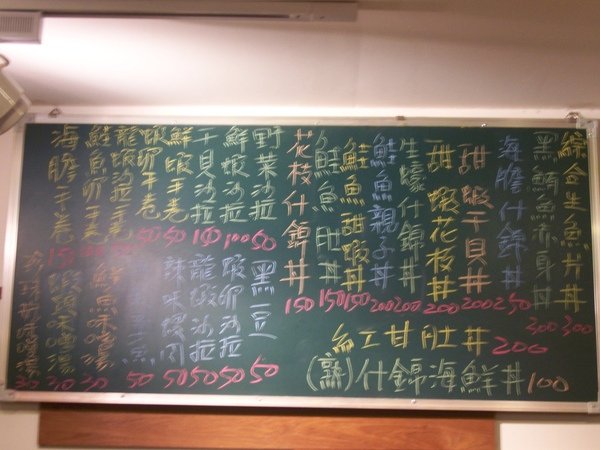 綜合生魚片丼 300
黑鮪魚赤身丼 300
海膽什錦丼 250
甜蝦干貝丼 200
甜蝦花枝丼 200
生蠔什錦丼 200
鮭魚親子丼 200
鮭魚甜蝦丼 150
鮭魚肚丼 150
花枝什錦丼 150
紅甘肚丼 200
(熟)什錦海鮮丼 100
野菜沙拉 50
鮮蝦沙拉 100
干貝沙拉 100
鮮蝦手卷 50
蝦卵手卷 50
龍蝦沙拉手卷
鮭魚卵手卷
海膽手卷
黑豆 50
蝦卵沙拉 50
龍蝦沙拉 50
辣味螺肉 50
50
鮮魚味噌湯 30
蝦味噌湯 30
味噌湯 30